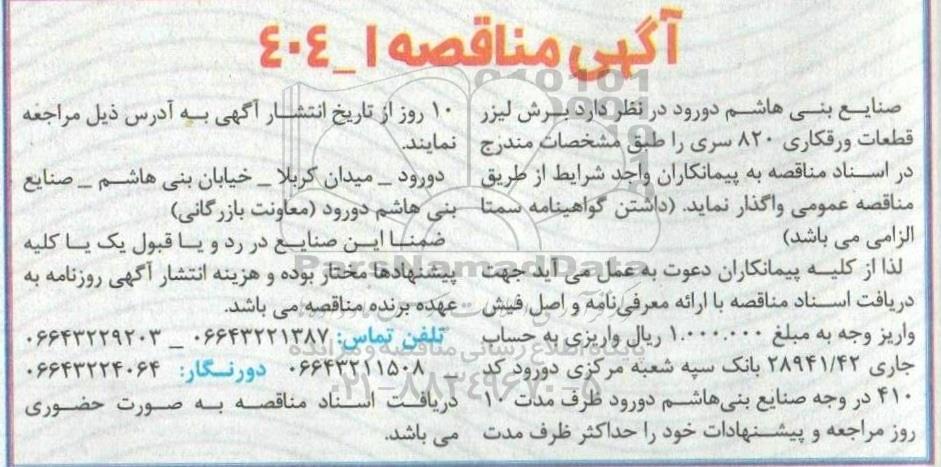 آگهی مناقصه ۱_۴۰۴
صنایع بنی هاشم دورود در نظر دارد برش لیزر
قطعات ورقکاری ۸۲۰ سری را طبق مشخصات مندرج
در اسناد مناقصه به پیمانکاران واجد شرایط از طریق
مناقصه عمومی واگذار نماید. (داشتن گواهینامه سمتا
الزامی می باشد)
لذا از کلیه پیمانکاران دعوت به عمل می آید جهت
دریافت اسناد مناقصه با ارائه معرفی‌نامه و اصل فیش
واریز وجه به مبلغ ۱.۰۰۰.۰۰۰ ریال واریزی به حساب
جاری ۲۸۹۴۱/۴۲ بانک سپه شعبه مرکزی دورود کد
۴۱۰ در وجه صنایع بنی‌هاشم دورود ظرف مدت ۱۰
روز مراجعه و پیشنهادات خود را حداکثر ظرف مدت
۱۰ روز از تاریخ انتشار آگهی به آدرس ذیل مراجعه
نمایند.
دورود _ میدان کربلا _ خیابان بنی هاشم _ صنایع
بنی هاشم دورود (معاونت بازرگانی)
ضمنا این صنایع در رد و یا قبول یک یا کلیه
پیشنهادها مختار بوده و هزینه انتشار آگهی روزنامه به
عهده برنده مناقصه می باشد.
تلفن تماس: ۰۶۶۴۳۲۲۱۳۸۷ _ ۰۶۶۴۳۲۲۹۲۰۳
_ ۰۶۶۴۳۲۱۱۵۰۸ دورنگار: ۰۶۶۴۳۲۲۴۰۶۴
دریافت اسناد مناقصه به صورت حضوری
می باشد.
ParsNamadData
پایگاه اطلاع رسانی مناقصه و مزایده
۰۲۱-۸۸۳۴۹۶۷۰-۵